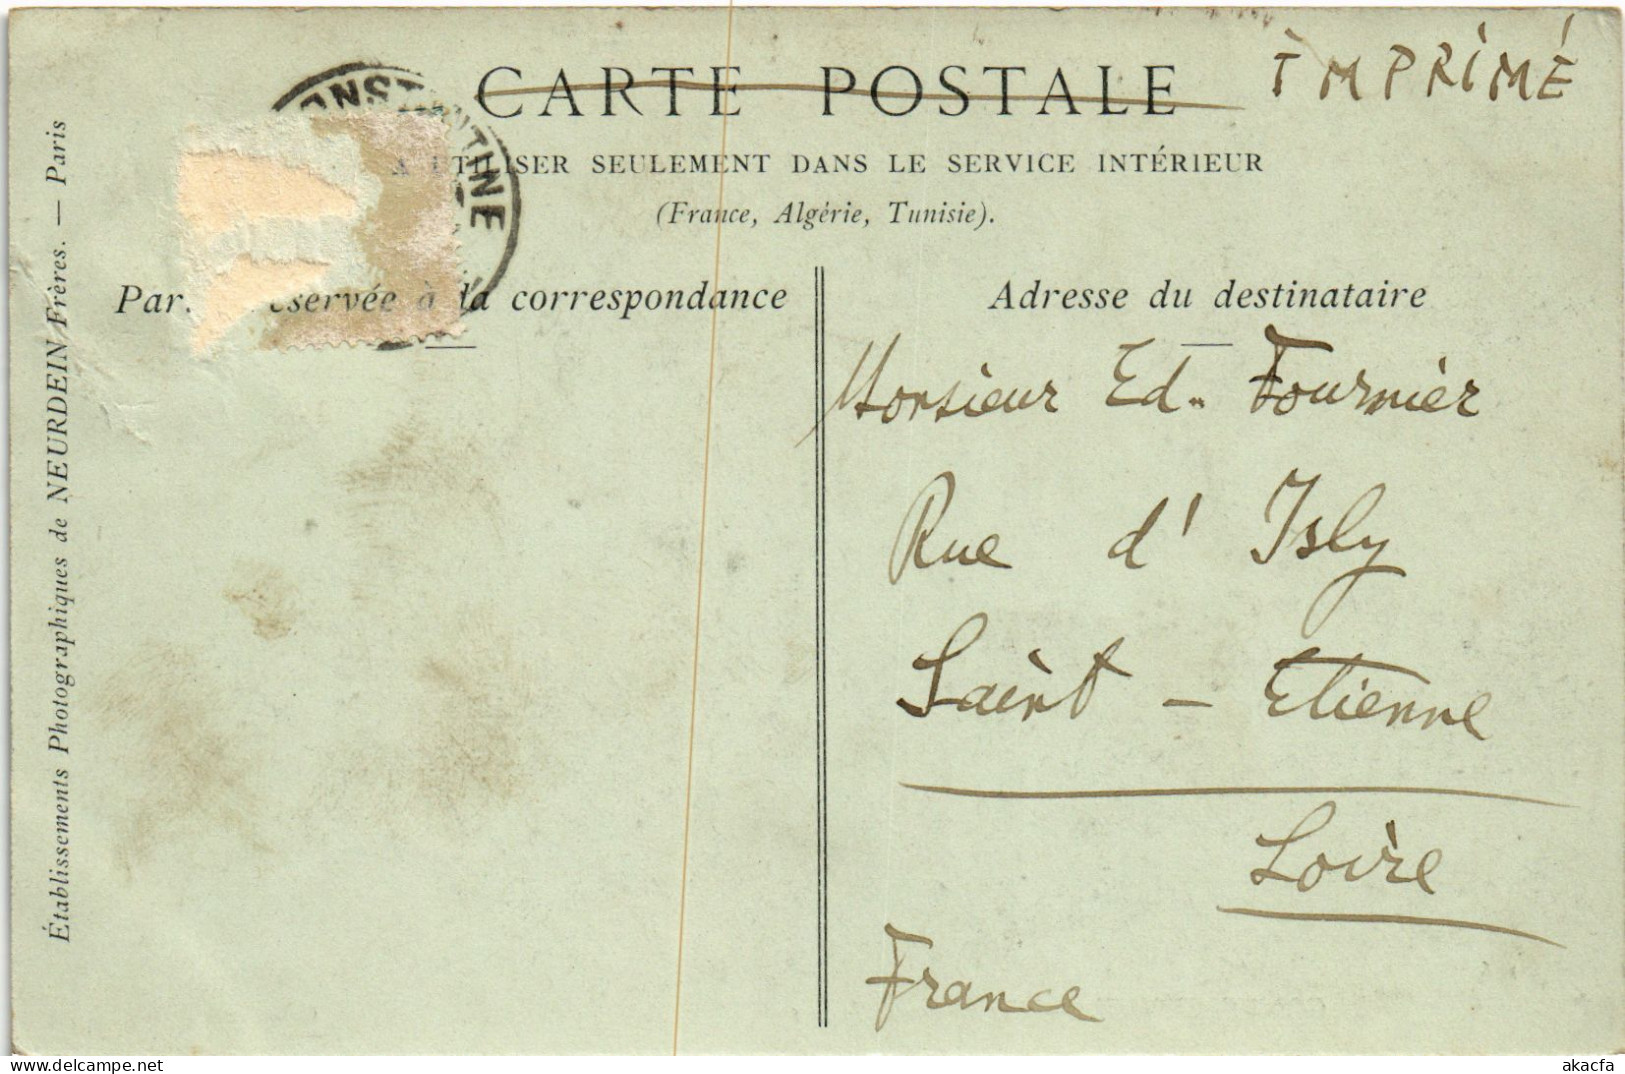 CARTE POSTALE
IMPRIMÉ
A UTILISER SEULEMENT DANS LE SERVICE INTÉRIEUR
(France, Algérie, Tunisie).
à la correspondance
Adresse du destinataire
Monsieur Ed. Fournier
Rue d'Isly
Saint-Etienne
Loire
France
Établissements Photographiques de NEURDEIN Frères. — Paris
akacfa